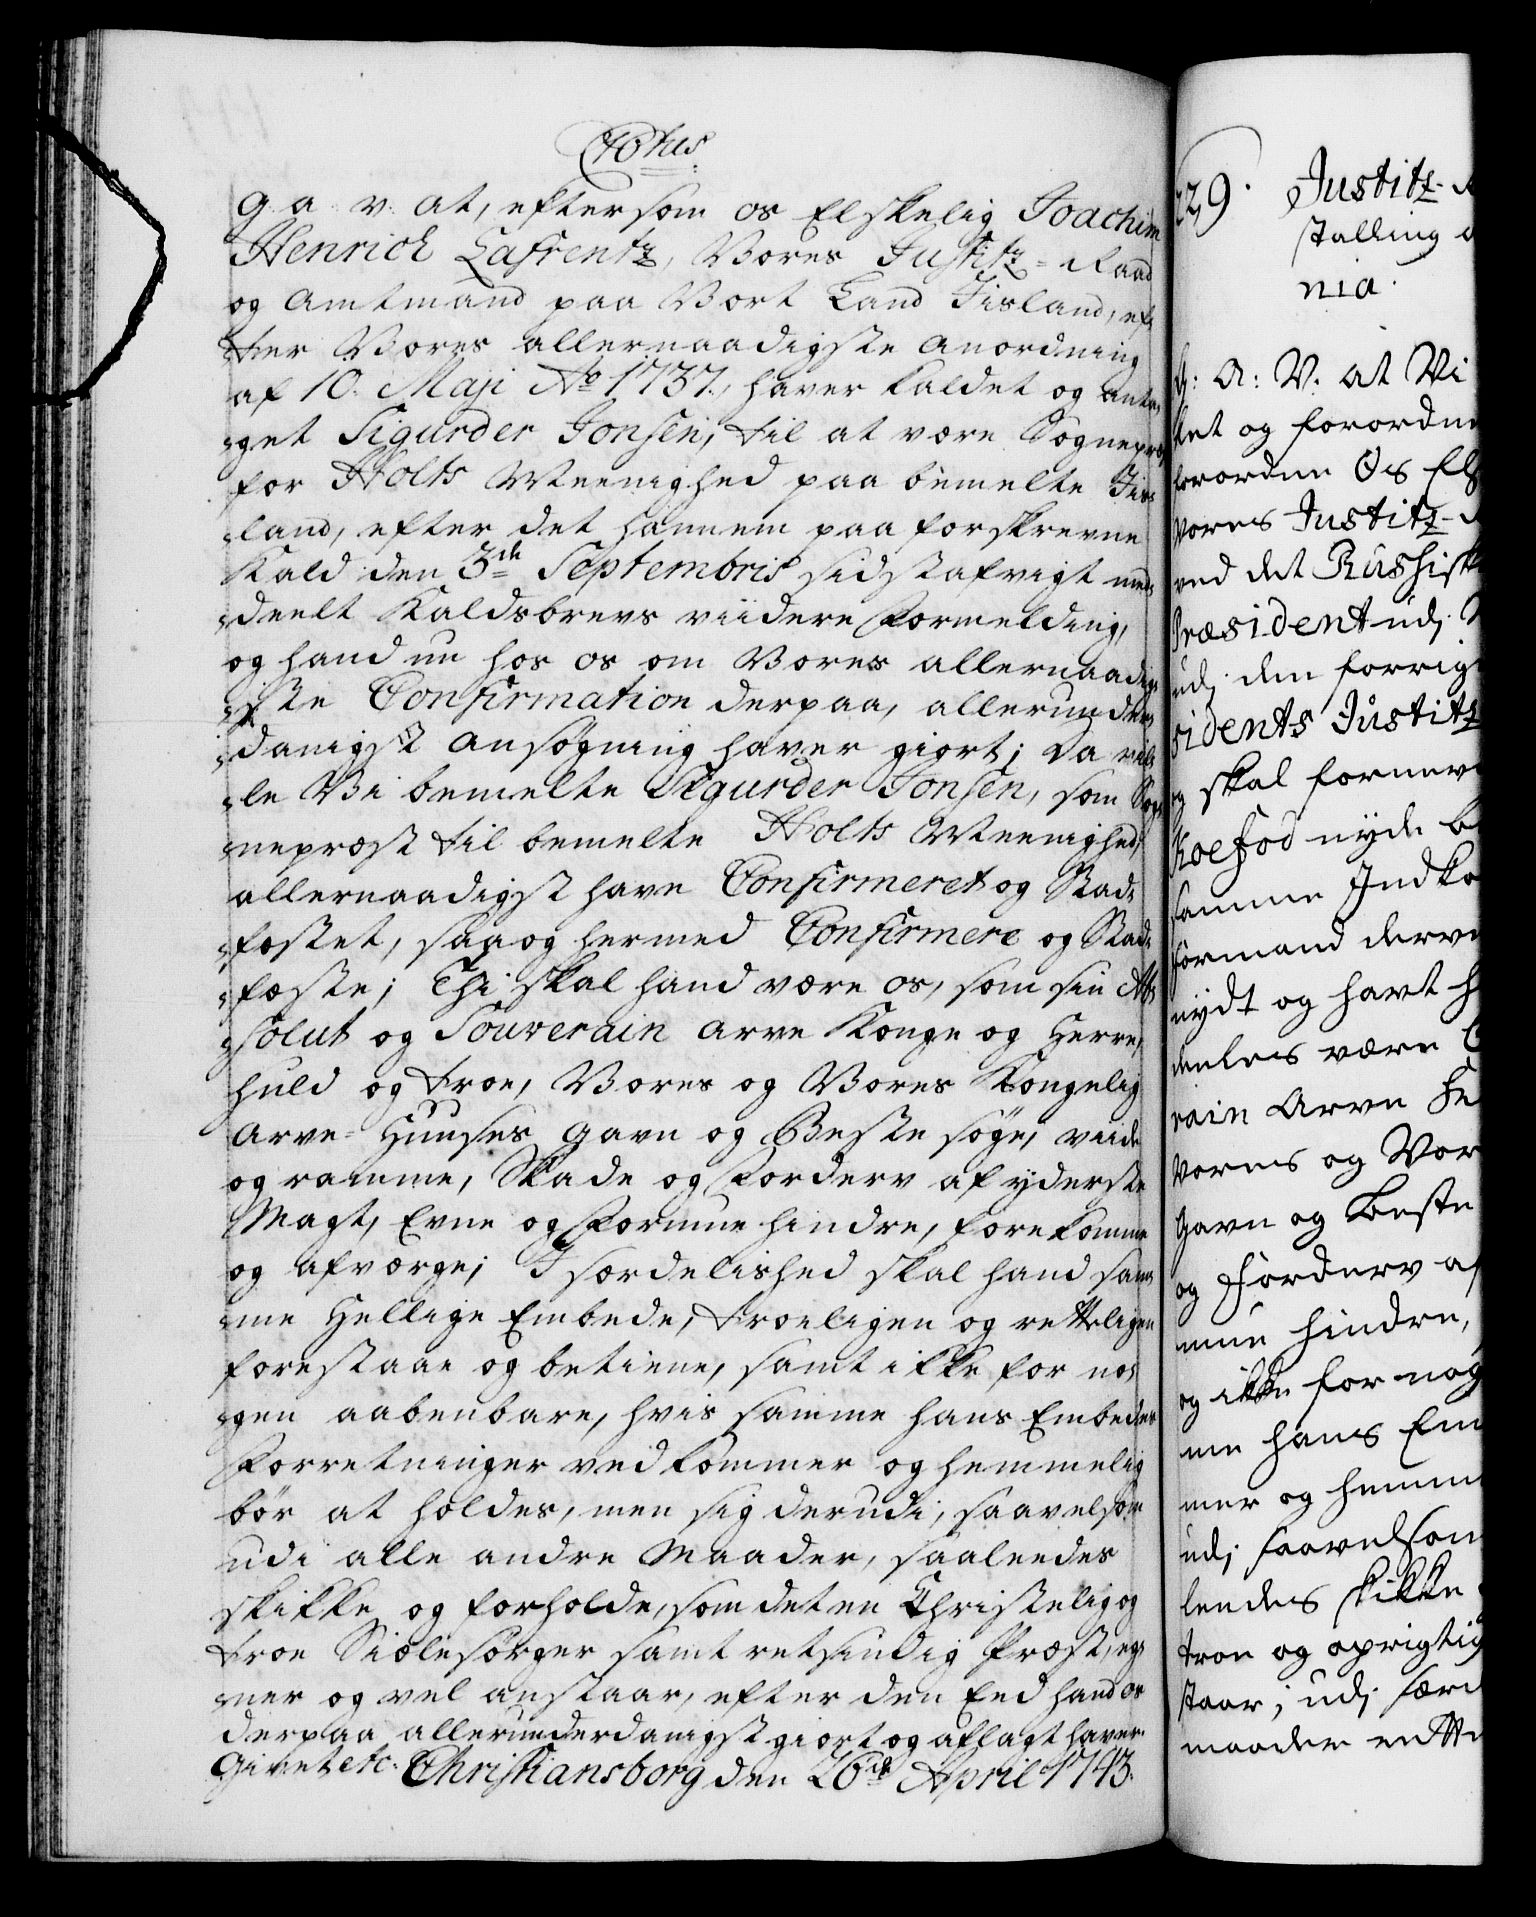 Chr: 6tus
G. A. V. at, eftersom os Elskelig Joachim
Henrich Lafrentz, Vores Justitz-Raad
og Amtmand paa Vort Land Iisland, ef-
ter Vores allernaadigste Anordning
af 10. Maji Ao 1737, haver kaldet og anta-
get Sigurder Jonsen, til at være Sognepræst
for Holts Meenighed paa bemelte Iis-
land, efter det hannem paa forskrevne
Kald den 3de Septembris sidstafvigt med-
deelt Kaldsbrevs viidere Formelding,
og hand nu hos os om Vores allernaadig-
ste Confirmation derpaa, allerunder-
danigst ansøgning haver giort; Da vil-
le Vi bemelte Sigurder Jonsen, som Sog-
nepræst til bemelte Holts Meenighed,
allernaadigst have Confirmeret og Stad-
fæstet, saa og hermed Confirmere og Stad-
fæste; Thi skal hand være os, som sin Ab-
solut og Souverain Arve Konge og Herre,
huld og troe, Vores og Vores Kongelig
Arve-Huuses Gavn og Beste søge, viide
og ramme, Skade og Forderv af yderste
Magt, Evne og Formue hindre, forekomme
og afværge; I særdelished skal hand sam-
me Hellige Embede, troeligen og retteligen
forestaae og betiene, samt ikke for no-
gen aabenbare, hvis samme hans Embedes
Forretninger vedkommer og hemmelig
bør at holdes, men sig derudi, saavelsom
udi alle andre Maader, saaleedes
skikke og forholde, som det en Christelig og
troe Siælesørger samt retsindig Præst, eg-
ner og vel anstaar, efter den Eed hand os
derpaa allerunderdanigst giort og aflagt haver.
Givet etc. Christiansborg den 26de April 1743.
229. Justitz-
stalling
nia.
G: A: V. at Vi
tet og forordne
forordne Os Els
Vores Justitz-
ved det Russisk
Præsident udj
udj den forrig
sidents Justitz
og skal fornev
Koefod nyde
samme Indko
formand derve
nydt og havt
deeles være
rain Arve
Vores og Vor
Gavn og Beste
og Forderv af
mue hindre,
og ikke for nog
me hans Em
mer og hemm
udj saavelsom
leedes skikke
troe og oprigtig
staar; udj sær
maader rette